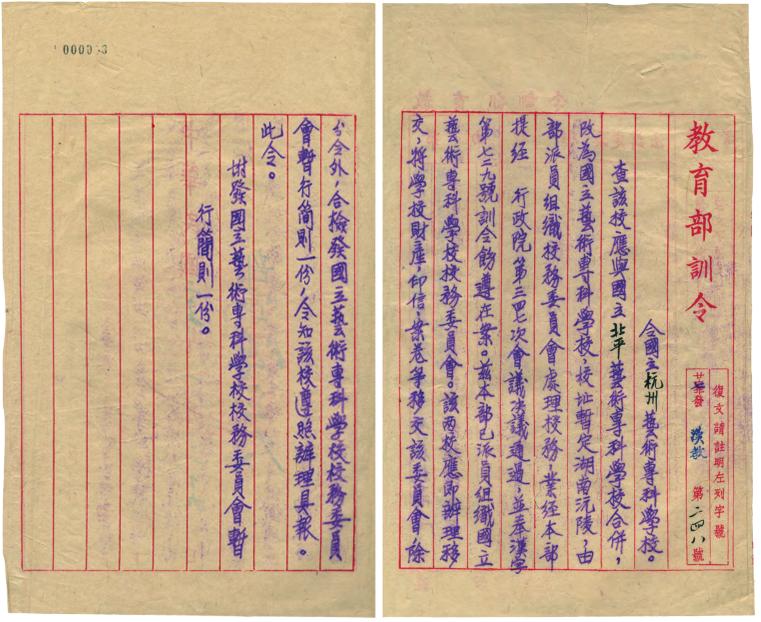 教育部訓令
復文請註明左列字號
發 漢教 第二四八號
令國立杭州藝術專科學校。
查該校應與國立北平藝術專科學校合併，
改為國立藝術專科學校，校址暫定湖南沅陵，由
部派員組織校務委員會處理校務，業經本部
提經 行政院第三四七次會議決議通過，並奉漢字
第七三九號訓令飭遵在案。茲本部已派員組織國立
藝術專科學校校務委員會。該兩校應即辦理移
交，將學校財產，印信，案卷等移交該委員會，除
分令外，合檢發國立藝術專科學校校務委員
會暫行簡則一份，令知該校遵照辦理具報。
此令。
附發國立藝術專科學校校務委員會暫
行簡則一份。